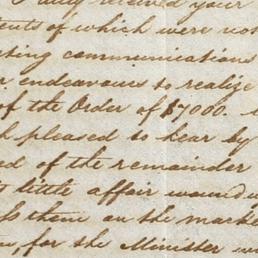 I duly received your
tents of which were not
sting communications
r endeavours to realize
of the Order of $7000.
h pleased to hear by
ed of the remainder
t little affair wound up
them on the marke
for the Minister w